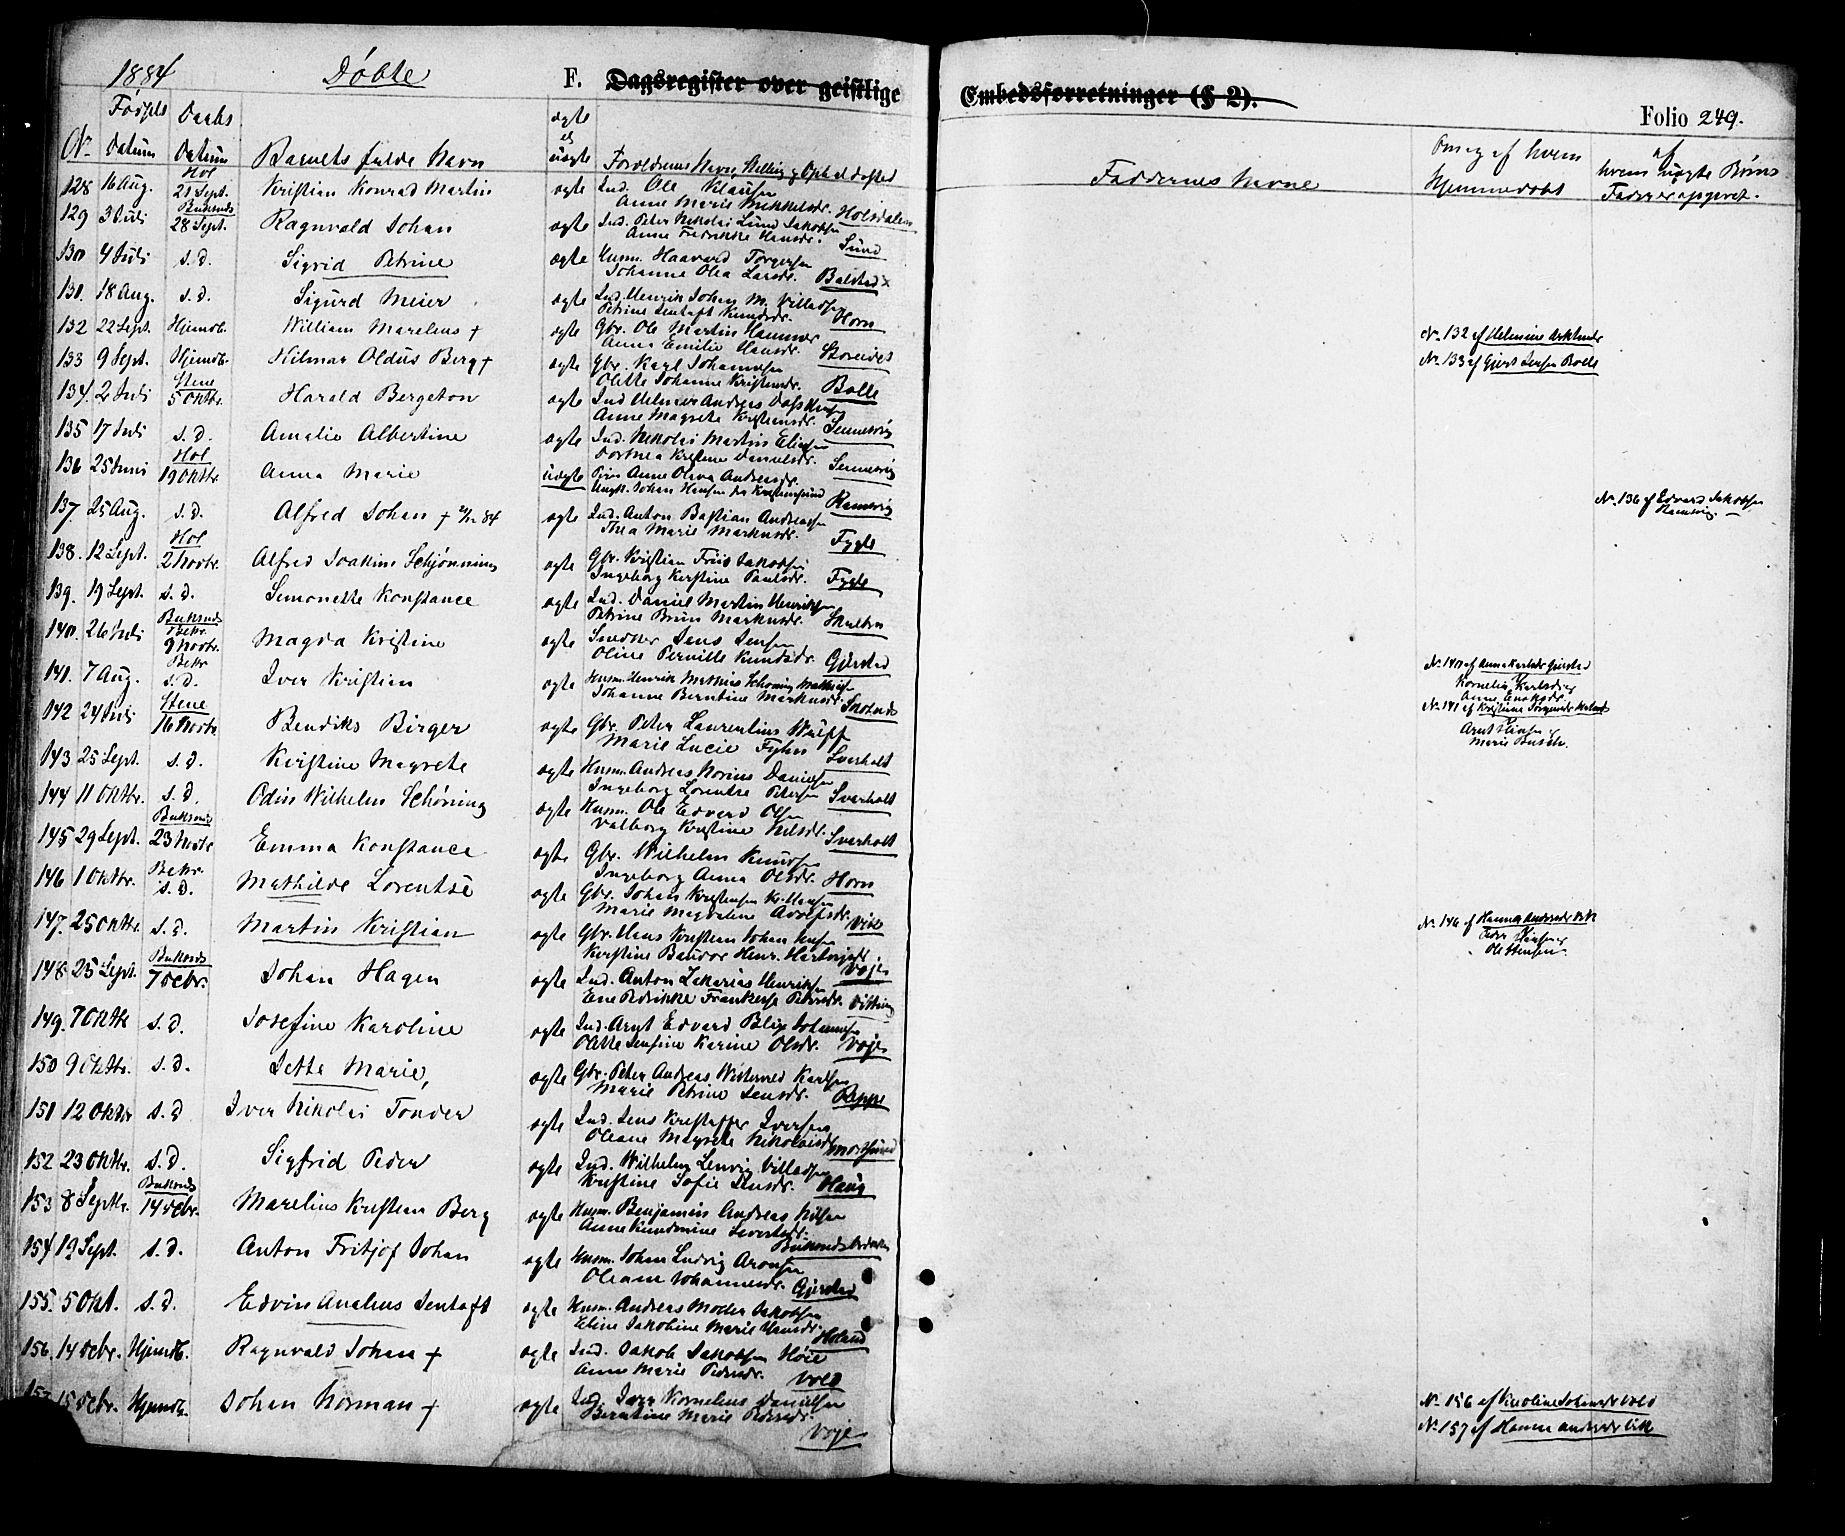 1884 Døbte F. Dagsregister over geistlige Embedsforretninger (§ 2). Folio 249.
N. Fødsels Datum Daabs Datum Barnets fulde Navn ægte el uægte Forældrenes Navn, Stilling og Opholdssted Faddernes Navne Omeg af hvem hjemmedøbt af hvem uægte Børns Fader er opgivet.
128 16 Aug. Hol 21 Sept. Kristian Konrad Martin ægte Ind. Ole Klausen
Anne Marie Mikkelsdr. Holsdalen
129 3 Juli Buksnæs 28 Sept. Ragnvald Johan ægte Ind. Peter Nikolai Lund Jakobsen
Anne Fredrikke Hansdr. Sund
130 4 Juli s. d. Sigrid Petrine ægte Husm. Haavard Torgersen
Johanne Olea Larsdr. Balstad
131. 18 Aug. s. d. Sigurd Meier ægte Ind. Henrik Johan M. Villadsen
Petrine Jentoft Knudsdr. Horn
132 22 Sept. Hjemdb. William Marelius + ægte Gbr. Ole Martin Hammer
Anna Emilie Hansdr. Storeidet
N. 132 af Helmine
133 9 Sept. Hjemdb. Hilmar Oldus Berg + ægte Gbr. Karl Johannesen
Olette Johanne Kristensdr. Bolle
N. 133 af Gjert Jensen Bolle
134. 2 Juli Stene 5 Oktbr. Harald Bergeton ægte Ind Helmer Andreas
Anne Magrete Kristiansdr. Sennesvig
135 17 Juli s. d. Amalie Albertine ægte Ind. Nikolai Martin Eliasen
Dorthea Kristine Danielsdr. Sennesvig
136 25 Juni Hol 19 Oktbr. Anna Marie uægte Pige Anne Olava Andreasdr.
Ungk. Johan Hansen fra Kristiansund Ramsvig
N. 136 af Edvard Jakobsen
Ramsvig.
137. 25 Aug. s. d. Alfred Johan + ægte Ind. Anton Bastian Andreasen
Thea Marie Markusdr. Fygle
138. 12 Sept. Hol 2 Novbr. Alfred Joakim Schjønning ægte Gbr. Kristian Friis Jakobsen
Ingeborg Kerstine Paulsdr. Fygle
139. 19 Sept. s. d. Simonette Konstance ægte Ind. Daniel Martin Henriksen
Petrine Bruun Markusdr.
140. 26 Juli Buksnæs Bekr. 9 Novbr. Magda Kristine ægte Smedker Jens Jensen
Oline Pernille Knudsdr. Gjerstad
N. 140 af Anna Karlsdr Gjerstad
Kornelia Karlsdr
Anne Enoksdr.
141. 7 Aug. Bekr s. d. Iver Kristian ægte Husm. Henrik Mathias Schøning Mathisen
Johanne Berntine Markusdr.
N. 141 af Kristine
Arnt Hansen
Marie Busch.
142 24 Juli Stene 16 Novbr Bendiks Birger ægte Gbr. Peter Laurentius Wulff
Marie Lucie Fyhn Sverholt
143 25 Sept. s. d. Kirstine Magrete ægte Husm. Andreas Norius Danielsen
Ingeborg Lorentse Petersen Sverholt
144 11 Oktbr. s. d. Odin Wilhelm Schøning ægte Husm. Ole Edvard Olsen
Valborg Kristine Nilsdr. Sverholt
145 29 Sept. Buksnæs 23 Novbr Emma Konstance ægte Gbr. Wilhelm Knudsen
Ingeborg Anna Olsdr. Horn
146 1 Oktbr. Bekr. s. d. Mathilde Lorentse ægte Gbr. Johan Kristensen Kr. Hansen
Marie Magdalene Adolfsdr. Vik
N. 146 af Hanna Andreasdr Vik
Peder Hansen
Ole Hensen
147. 25 Oktbr. s. d. Martin Kristian ægte Gbr. Hans Kristian Johan
Kirstine Baudor Henr. Voje
148 25 Sept. Buksnæs 7 Decbr. Johan Hagen ægte Ind. Anton Zakarias Henriksen
Ene Pedrikke Pedersdr.
149. 7 Oktbr s. d. Josefine Karoline ægte Ind. Arnt Edvard Blix Johannesen
Olette Jensine Karine Olsdr. Voje
150 9 Oktbr. s. d. Jette Marie, ægte Gbr. Peter Andreas Karlsen
Marie Petrine Jensdr. Reppe
151 12 Oktbr s. d Iver Nikolai Tonder ægte Ind. Jens Kristoffer Iversen
Oleane Magrete Nikolaisdr.
152 23 Oktbr. s. d. Sigfrid Peder ægte Ind. Wilhelm Lenvig Villadsen
Kristine Sofie Jensdr. Haug
153 8 Septbr. Buksnæs 14 Decbr. Marelius Kristian Berg ægte Husm. Benjamin Andreas Nilsen
Anne Kundmine Sivertsdr.
154 19 Sept. s. d. Anton Fritjof Johan ægte Husm. Johan Ludvig Aronsen
Oleane Johannesdr. Gjerstad
155. 5 Okt. s. d. Edvin Analius Jentoft ægte Husm. Andreas Moder Jakobsen
Eline Jakobine Marie Hansdr. Holand
156. 14 Decbr. Hjemdb. Ragnvald Johan + ægte Ind. Jakob Jakobsen Høie
Anne Marie Pedersdr. Vold
N. 156 af Karoline Johansdr Vold
157 15 Decbr. Hjemdb. Johan Norman + ægte Ind. Iver Kornelius Danielsen
Berntine Marie Pedersdr. Voje
N. 157 af Hanna Andersdr Vik